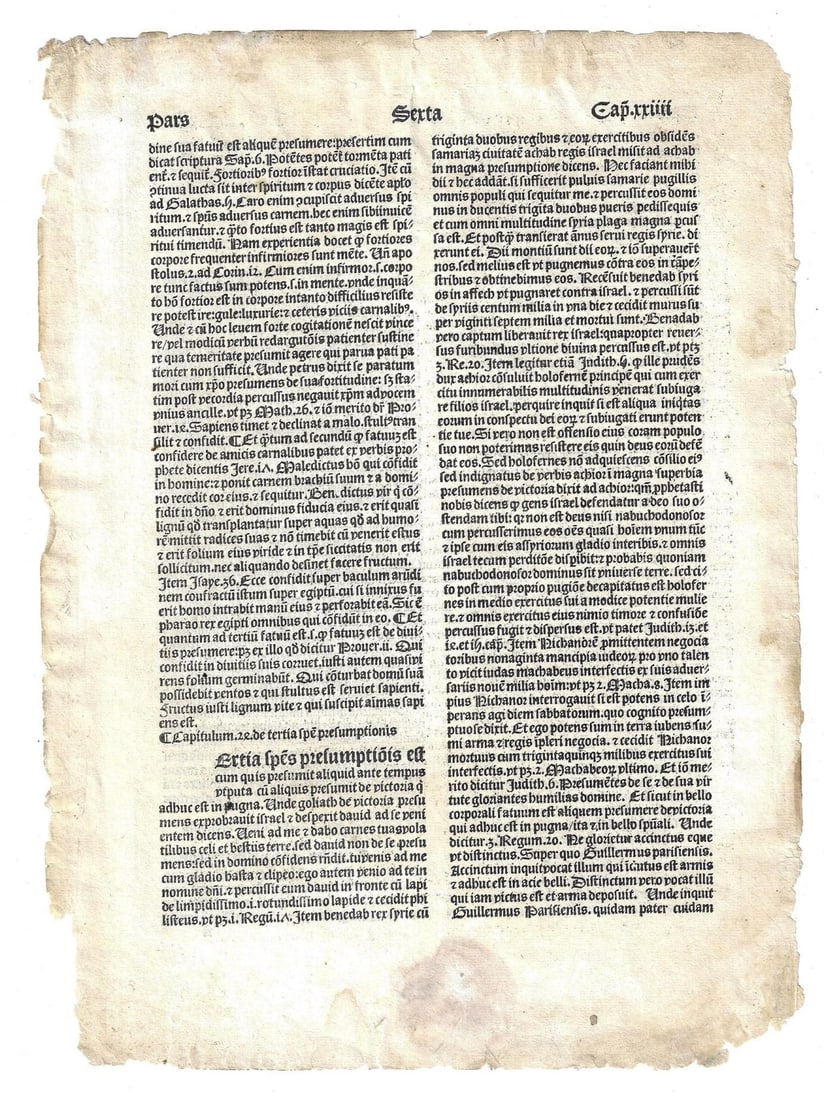 Pars Sexta Cap̄.xxiiii
dine sua fatuū est aliquē presumere:presertim cum
dicat scriptura Sap̄.6.Potētes potēt tormēta pati
enť.⁊ sequiť.Fortioribꝰ fortior īstat cruciatio.Itē cū
ꝯtinua lucta sit inter spiritum ⁊ corpus dicēte apło
ad Galathas.5.Caro enim ꝯcupiscit aduersus spi
ritum.⁊ spūs aduersus carnem.hec enim sibiinuicē
aduersantur.⁊ q̄to fortius est tanto magis est spi⸗
ritui timendū. Nam experientia docet ꝙ fortiores
corpore frequenter infirmiores sunt mēte. Uñ apo
stolus.2.ad Corin.12. Cum enim infirmor.s.corpo
re tunc factus sum potens.s.in mente.vnde inquā⸗
to hō fortior est in corpore intanto difficilius resiste
re potest ire:gule:luxurie:⁊ ceteris viciis carnalibꝰ.
Unde ⁊ cū hoc leuem forte cogitationē nescit vince
re/vel modicū verbū redargutōis patienter sustine
re qua temeritate presumit agere qui parua pati pa
tienter non sufficit. Unde petrus dixit se paratum
mori cum xp̄o presumens de sua fortitudine: sꝫ sta⸗
tim post vecordia percussus negauit xp̄m ad vocem
vnius ancille.vt pꝫ Math.26.⁊ iō merito dr̄ Pro⸗
uer.14.Sapiens timet ⁊ declinat a malo.stultꝰ tran
silit ⁊ confidit. ¶Et q̄tum ad secundū ꝙ fatuū est
confidere de amicis carnalibus patet ex verbis pro⸗
phete dicentis Jere.17. Maledictus hō qui cōfidit
in homine:⁊ ponit carnem brachiū suum ⁊ a domi⸗
no recedit cor eius.⁊ sequitur.Ben. dictus vir q̄ cō⸗
fidit in dño ⁊ erit dominus fiducia eius.⁊ erit quasi
lignū qđ transplantatur super aquas qđ ad humo⸗
rē mittit radices suas ⁊ nō timebit cū venerit estus
⁊ erit folium eius viride ⁊ in tp̄e siccitatis non erit
sollicitum.nec aliquando desinet facere fructum.
Item Isaye.36.Ecce confidit super baculum arūdi
nem confractū istum super egiptū.cui si innixus fu
erit homo intrabit manū eius ⁊ perforabit eā.Sic ē
pharao rex egipti omnibus qui cōfidūt in eo. ¶Et
quantum ad tertiū fatuū est.s.ꝙ fatuū est de diui⸗
tiis presumere:pꝫ ex illo qđ dicitur Prouer.11. Qui
confidit in diuitiis suis corruet.iusti autem quasi vi
rens folium germinabūt. Qui cōturbat domū suā
possidebit ventos ⁊ qui stultus est seruiet sapienti.
Fructus iusti lignum vite ⁊ qui suscipit aīmas sapi
ens est.
¶Capitulum.24.de tertia spē presumptionis
Ertia spēs presumptiōis est
cum quis presumit aliquid ante tempus
vtputa cū aliquis presumit de victoria q̄
adhuc est in pugna.Unde goliath de victoria presu
mens exprobrauit israel ⁊ despexit dauid ad se veni
entem dicens.Ueni ad me ⁊ dabo carnes tuas vola
tilibus celi et bestiis terre.sed dauid non de se presu
mens:sed in domino cōfidens rñdit.tu venis ad me
cum gladio hasta ⁊ clipeo:ego autem venio ad te in
nomine dñi.⁊ percussit eum dauid in fronte cū lapi
de limpidissimo.i.rotundissimo lapide ⁊ cecidit phi
listeus.vt pꝫ.1.Regū.17.Item benedab rex syrie cū
triginta duobus regibus ⁊ eoꝝ exercitibus obsidēs
samariaꝫ ciuitatē achab regis israel misit ad achab
in magna presumptione dicens. Nec faciant mihi
dii ⁊ hec addāt.si sufficerit puluis samarie pugillis
omnis populi qui sequitur me.⁊ percussit eos domi
nus in ducentis trigita duobus pueris pedissequis
et cum omni multitudine syria plaga magna ꝑcus
sa est.Et postꝙ transierat ānus serui regis syrie. di
xerunt ei. Dii montiū sunt dii eoꝝ. ⁊ iō superauerūt
nos.sed melius est vt pugnemus cōtra eos in cāpe⸗
stribus ⁊ obtinebimus eos. Recēsuit benedab syri
os in affech vt pugnaret contra israel.⁊ percussi sūt
de syriis centum milia in vna die ⁊ cecidit murus su
per viginti septem milia et mortui sunt. Benadab
vero captum liberauit rex israel:qua propter reuer⸗
sus furibundus vltione diuina percussus est.vt ptꝫ
3.Re.20.Item legitur etiā Judith.5. ꝙ ille prudēs
dux achior cōsuluit holofernē principē qui cum exer
citu innumerabilis multitudinis venerat subiuga
re filios israel.perquire inquit si est aliqua iniq̄tas
eorum in conspectu dei eoꝝ ⁊ subiugati erunt poten
tie tue.Si vero non est offensio eius coram populo
suo non poterimus resistere eis quin deus eorū defē
dat eos.Sed holofernes nō adquiescens cōsilio ei⁹
sed indignatus de verbis achiorī magna superbia
presumens de victoria dixit ad achior:qm̄ ꝓphetasti
nobis dicens ꝙ gens israel defendatur a deo suo o⸗
stendam tibi:qꝛ non est deus nisi nabuchodonosor
cum percusserimus eos oēs quasi hoīem vnum tūc
⁊ ipse cum eis assyriorum gladio interibis.⁊ omnis
israel tecum perditōe disꝑibit:⁊ probabis quoniam
nabuchodonosor dominus sit vniuerse terre.sed ci⸗
to post cum proprio pugiōe decapitatus est holofer
nes in medio exercitus sui a modice potentie mulie
re.⁊ omnis exercitus eius nimio timore ⁊ confusiōe
percussus fugit ⁊ dispersus est.vt patet Judith.13.et
14.et 15.cap̄. Item Nichanorē ꝓmittentem negocia
toribus nonaginta mancipia iudeoꝝ pro vno talen
to vicit iudas machabeus interfectis ex suis aduer⸗
sariis nouē milia hoīm:vt pꝫ 2.Macha.8. Item im
pius Nichanor interrogauit si est potens in celo ī⸗
perans agi diem sabbatorum.quo cognito presum⸗
ptuose dixit.Et ego potens sum in terra iubens su⸗
mi arma ⁊ regis īpleri negocia. ⁊ cecidit Nichanor
mortuus cum trigintaquinqꝫ milibus exercitus sui
interfectis.vt pꝫ.2. Machabeoꝝ vltimo. Et iō me⸗
rito dicitur Judith.6.Presumētes de se ⁊ de sua vir
tute gloriantes humilias domine. Et sicut in bello
corporali fatuum est aliquem presumere de victoria
qui adhuc est in pugna/ita ⁊,in bello spūali. Unde
dicitur.3. Regum.20. Ne glorietur accinctus eque
vt distinctus.Super quo Guillermus parisiensis.
Accinctum inquit vocat illum qui īcutus est armis
⁊ adhuc est in acie belli.Distinctum vero vocat illū
qui iam victus est et arma deposuit. Unde inquit
Guillermus Parisiensis. quidam pater cuidam